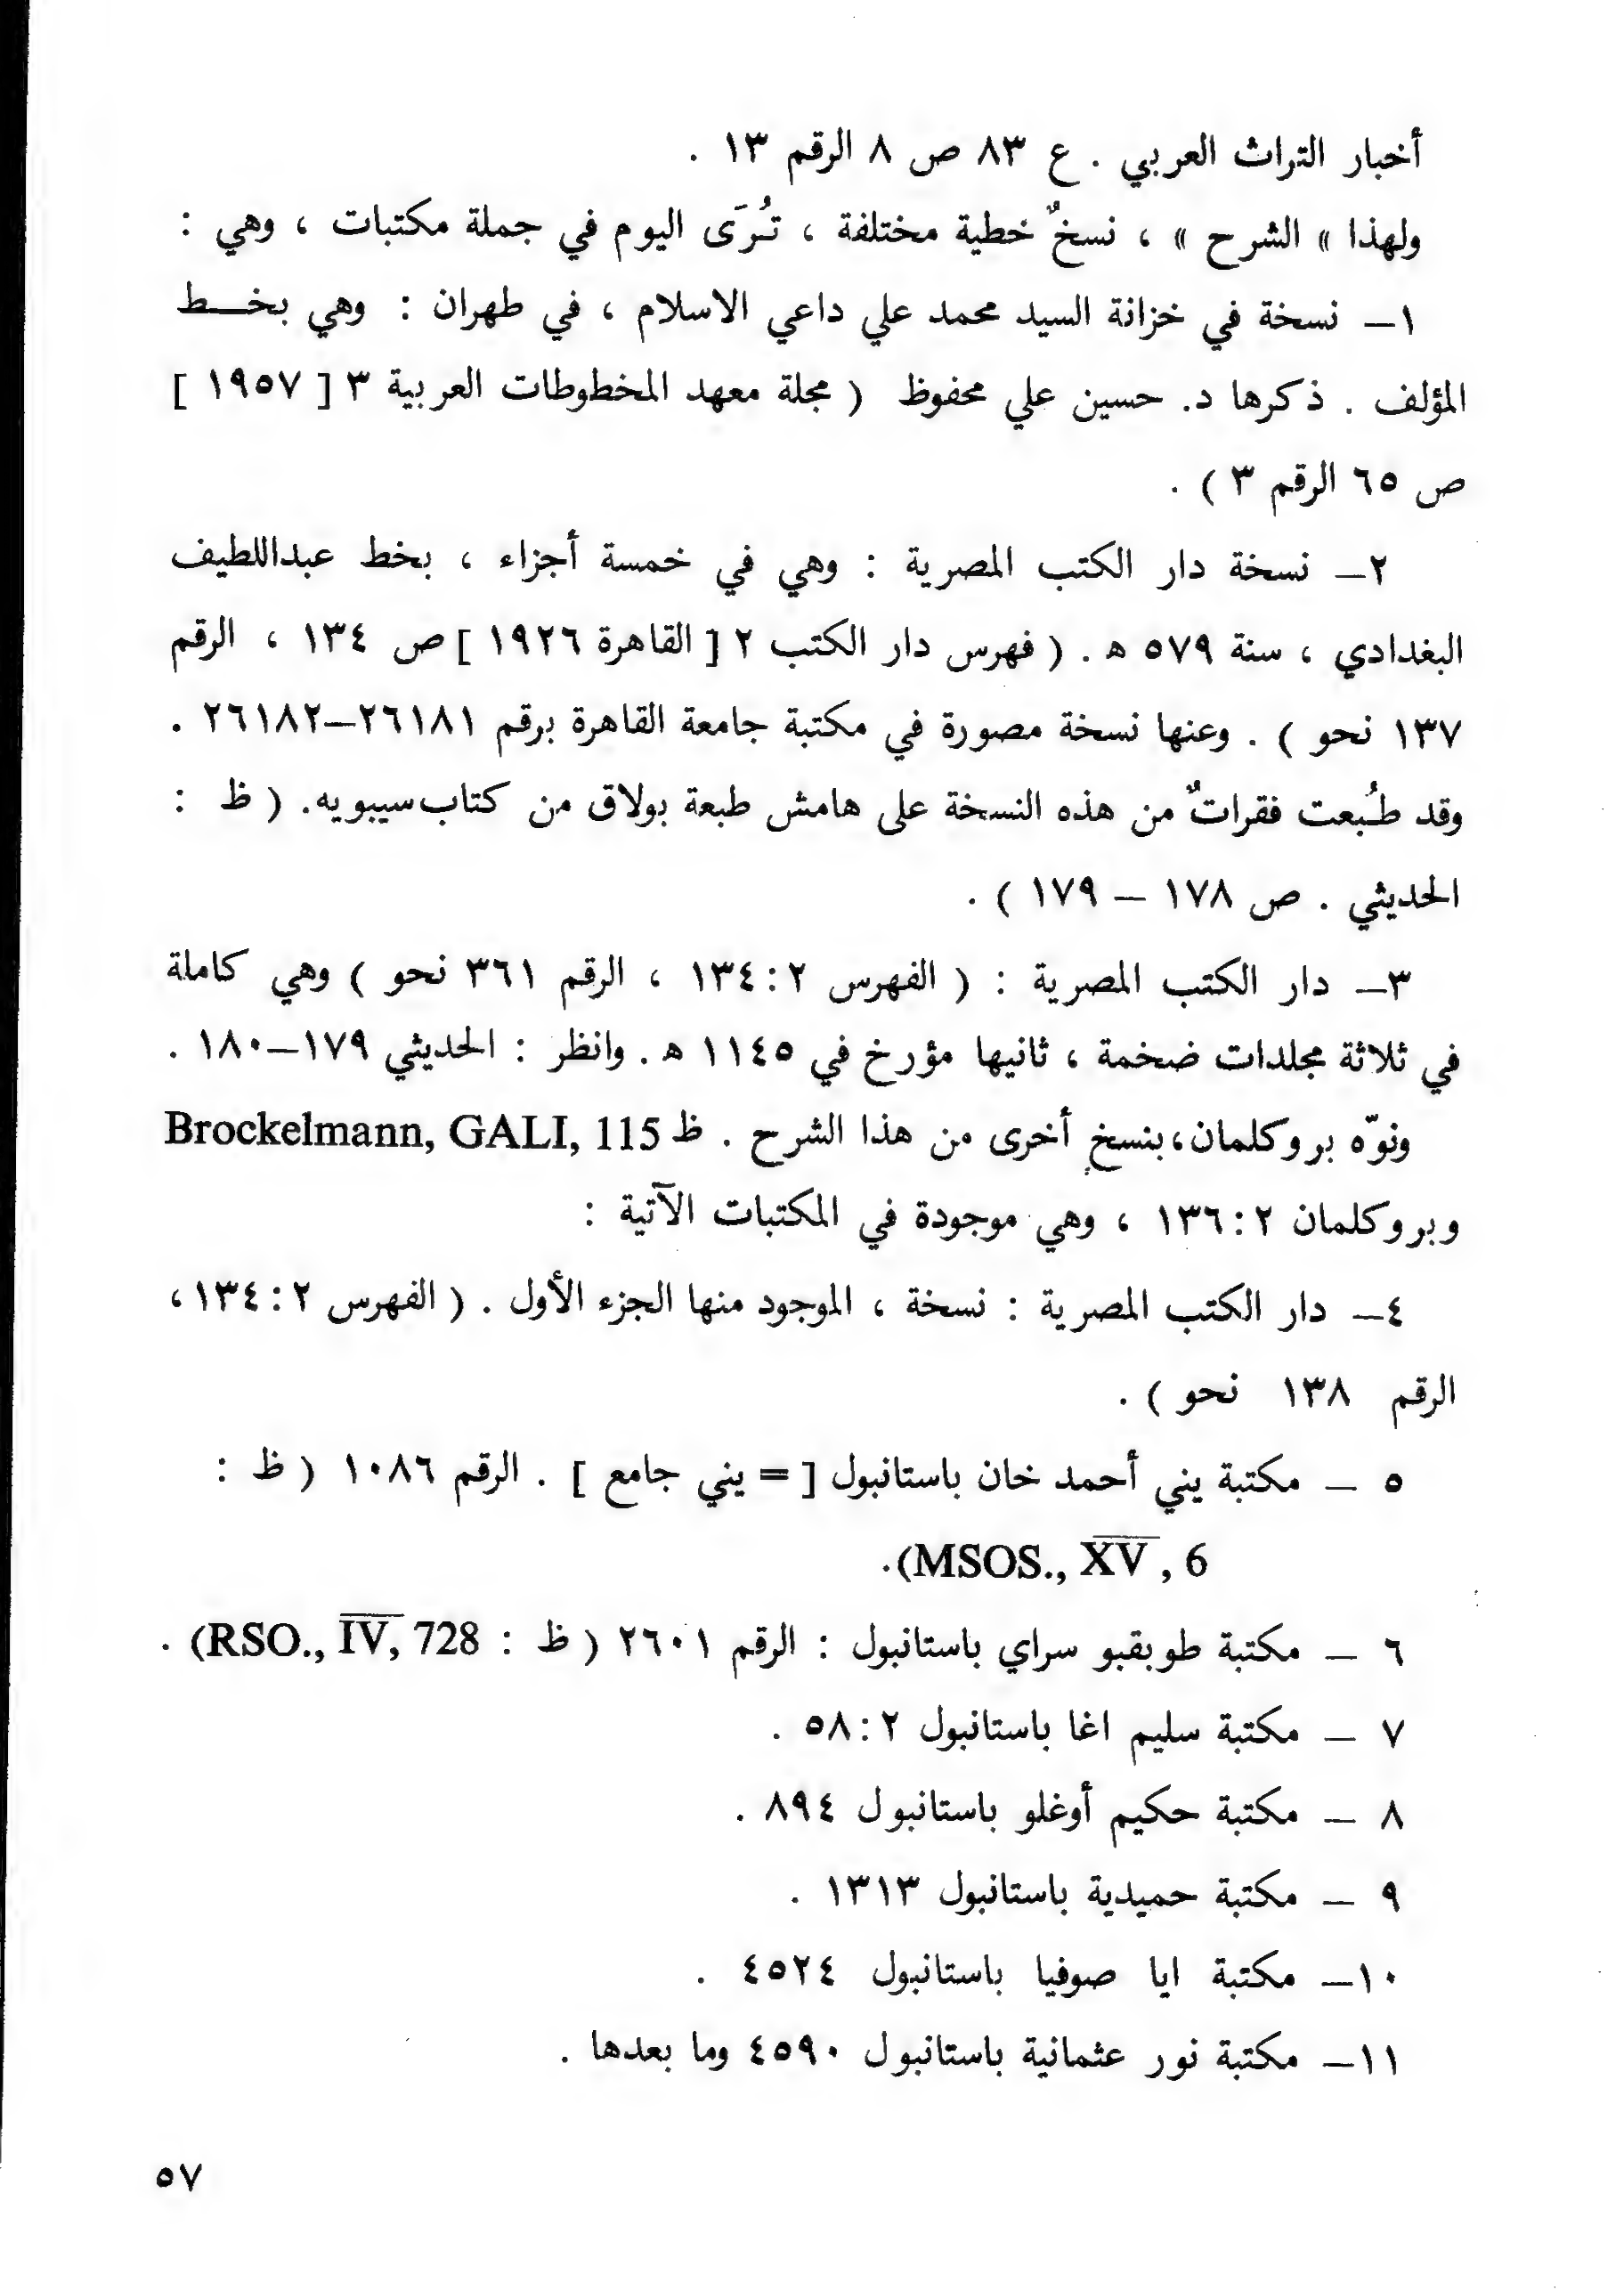 أخبار التراث العربي . ع ٨٣ ص ٨ الرقم ١٣ .
ولهذا « الشرح » ، نسخٌ خطية مختلفة ، تُرَى اليوم في جملة مكتبات ، وهي :
١ــ نسخة في خزانة السيد محمد علي داعي الاسلام ، في طهران : وهي بخـــط
المؤلف . ذكرها د. حسين علي محفوظ ( مجلة معهد المخطوطات العربية ٣ [ ١٩٥٧ ]
ص ٦٥ الرقم ٣ ) .
٢ــ نسخة دار الكتب المصرية : وهي في خمسة أجزاء ، بخط عبداللطيف
البغدادي ، سنة ٥٧٩ ه . ( فهرس دار الكتب ٢ [ القاهرة ١٩٢٦ ] ص ١٣٤ ، الرقم
١٣٧ نحو ) . وعنها نسخة مصورة في مكتبة جامعة القاهرة برقم ٢٦١٨١ــ٢٦١٨٢ .
وقد طُبعت فقراتٌ من هذه النسخة على هامش طبعة بولاق من كتاب سيبويه. ( ظ :
الحديثي . ص ١٧٨ ــ ١٧٩ ) .
٣ــ دار الكتب المصرية : ( الفهرس ٢ : ١٣٤ ، الرقم ٣٦١ نحو ) وهي كاملة
في ثلاثة مجلدات ضخمة ، ثانيها مؤرخ في ١١٤٥ ه . وانظر : الحديثي ١٧٩ــ١٨٠ .
ونوّه بروكلمان، بنسخٍ أخرى من هذا الشرح . ظ Brockelmann, GALI, 115
وبروكلمان ٢ : ١٣٦ ، وهي موجودة في المكتبات الآتية :
٤ــ دار الكتب المصرية : نسخة ، الموجود منها الجزء الأول . ( الفهرس ٢ : ١٣٤ ،
الرقم ١٣٨ نحو ) .
٥ ــ مكتبة يني أحمد خان باستانبول [ = يني جامع ] . الرقم ١٠٨٦ ( ظ :
(MSOS., XV, 6).
٦ ــ مكتبة طوبقبو سراي باستانبول : الرقم ٢٦٠١ ( ظ : RSO., IV, 728) .
٧ ــ مكتبة سليم اغا باستانبول ٢ : ٥٨ .
٨ ــ مكتبة حكيم أوغلو باستانبول ٨٩٤ .
٩ ــ مكتبة حميدية باستانبول ١٣١٣ .
١٠ــ مكتبة ايا صوفيا باستانبول ٤٥٢٤ .
١١ــ مكتبة نور عثمانية باستانبول ٤٥٩٠ وما بعدها .
٥٧